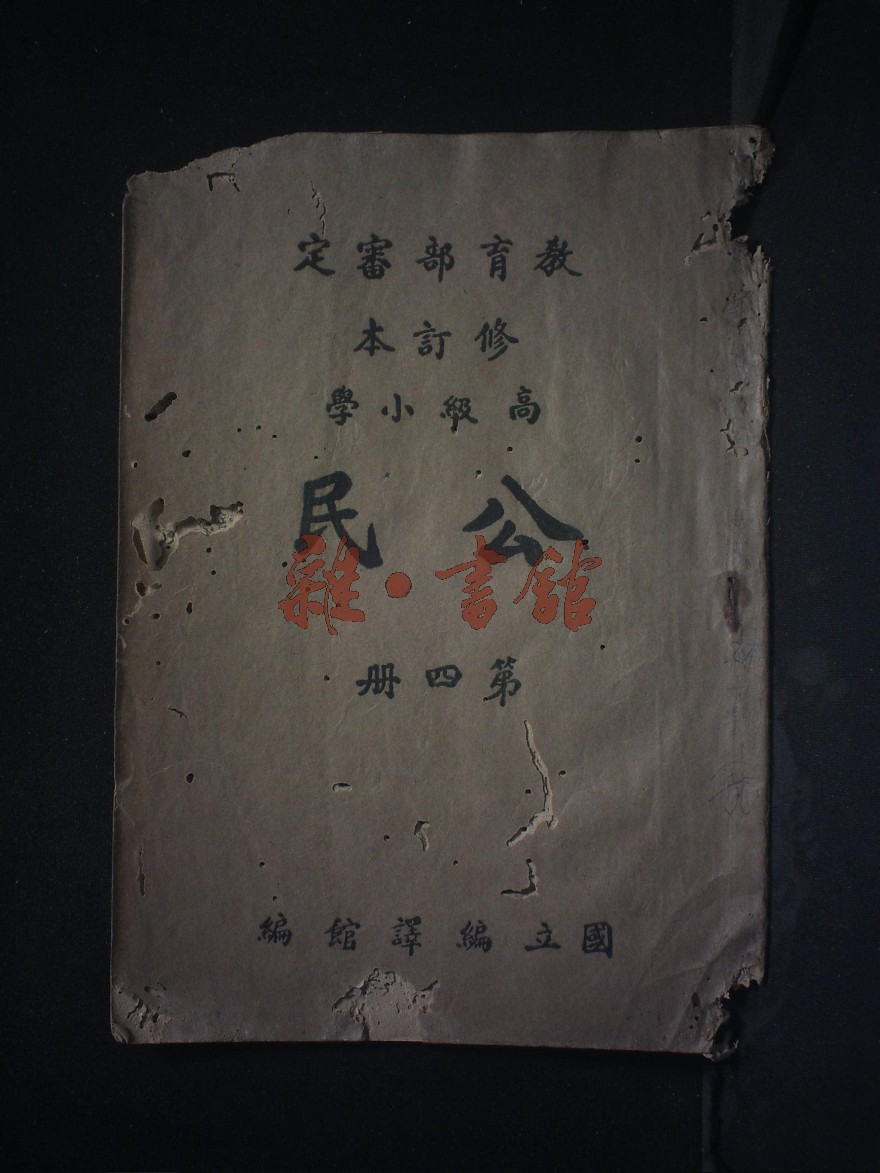 教育部審定
修訂本
高級小學
公民
雜·書館
第四冊
國立編譯館編